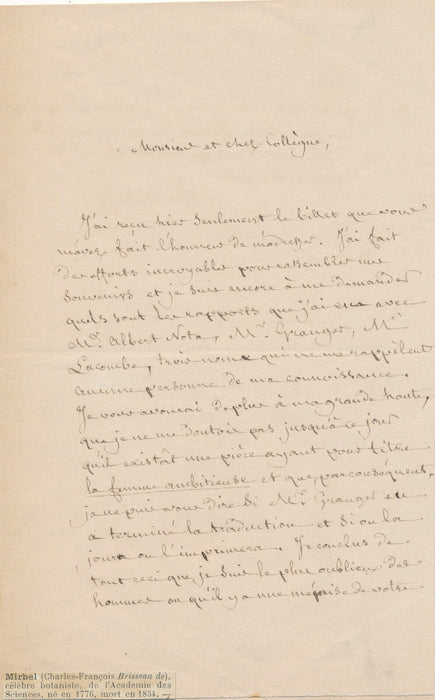 Monsieur et cher Collègue,
J'ai reçu hier seulement le billet que vous
m'avez fait l'honneur de m'adresser. J'ai fait
des efforts incroyable pour rassembler mes
souvenirs et je suis encore à me demander
quels sont les rapports que j'ai eus avec
Mr. Albert Nota, Mr. Granger, Mr
Lacombe, trois noms qui ne me rappèlent
aucune personne de ma connoissance.
Je vous avouerai de plus à ma grande honte,
que je ne me doutois pas jusqu'à ce jour
qu'il existât une pièce ayant pour titre
la femme ambitieuse et que, par conséquent,
je ne puis vous dire si Mr. Granger en
a terminé la traduction et si on la
jouera ou l'imprimera. Je conclus de
tout ceci que je suis le plus oublieux des
hommes ou qu'il y a une méprise de votre
Mirbel (Charles-François Brisseau de),
célèbre botaniste, de l'Academie des
Sciences, né en 1776, mort en 1854. —